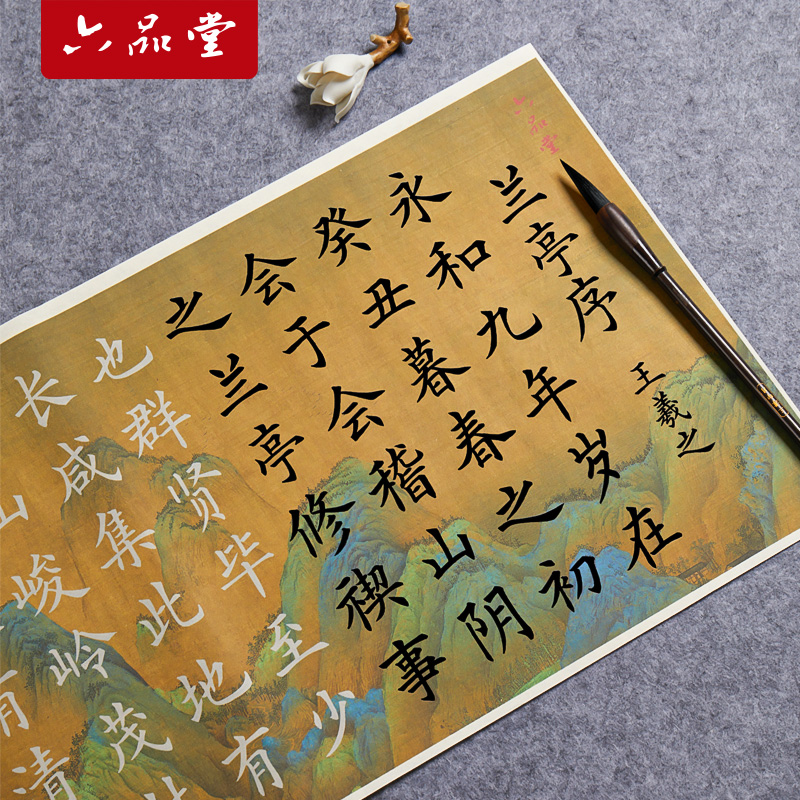 六品堂
六品堂
兰亭序
王羲之
永和九年岁在
癸丑暮春之初
会于会稽山阴
之兰亭修禊事
也群贤毕至少
长咸集此地有
山峻岭茂
有清